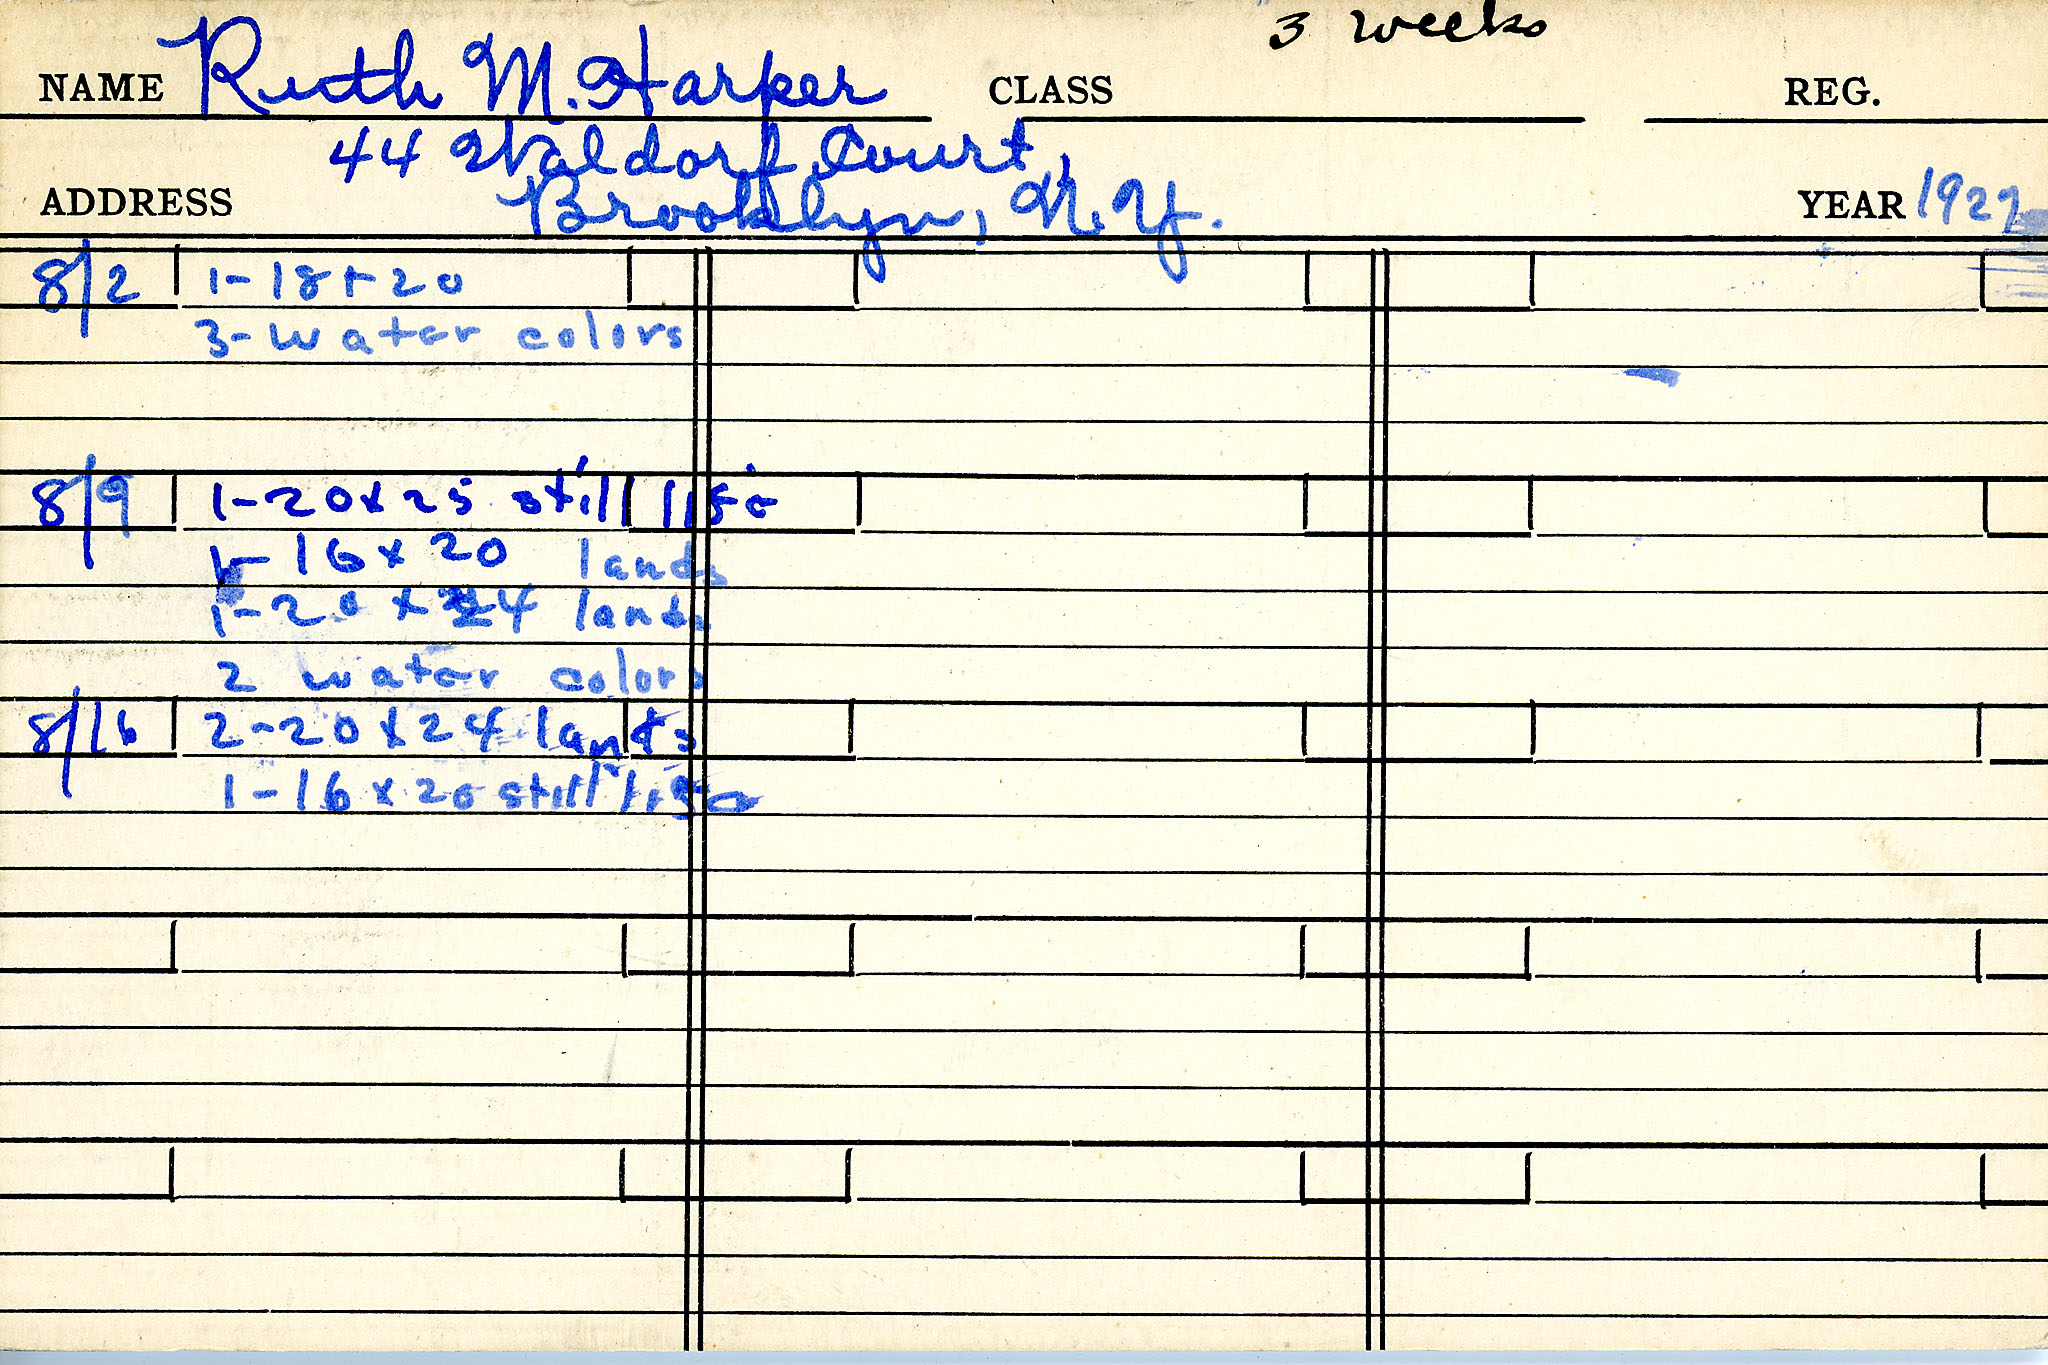 3 weeks
NAME Ruth M. Harper CLASS REG.
44 Waldorf Court,
ADDRESS Brooklyn, N.Y. YEAR 1922
8/2 1-18+20
3-water colors
8/9 1-20x25 still life
1-16x20 lands
1-20x24 lands
2 water colors
8/16 2-20x24 lands
1-16x20 still life